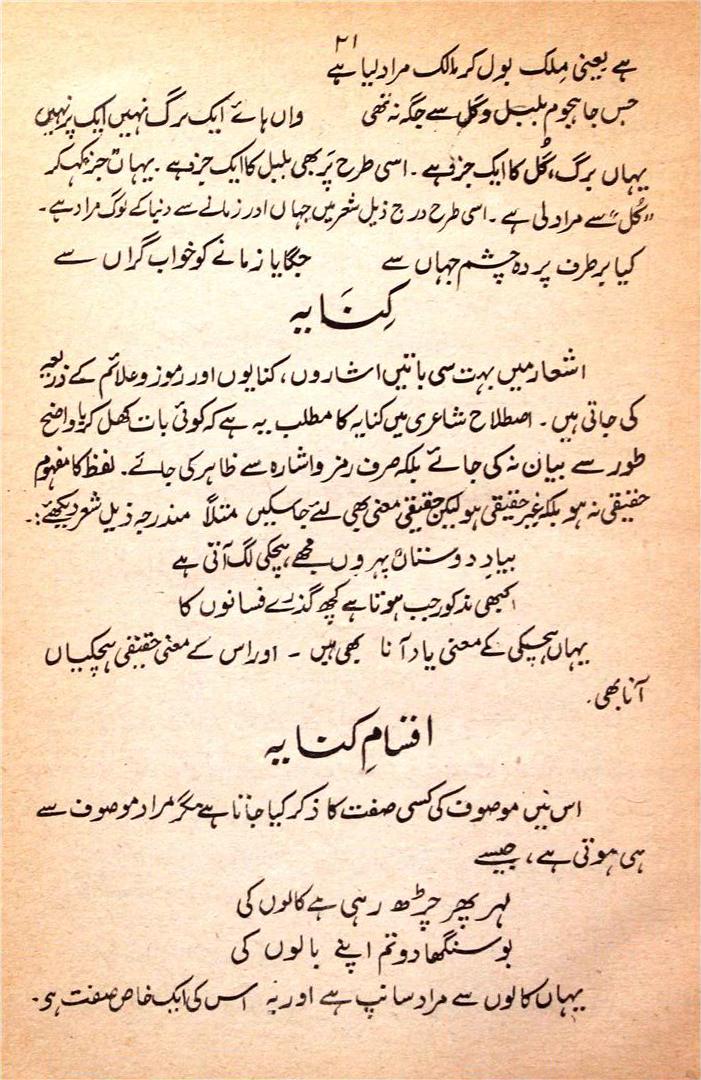 ۲۱
ہے یعنی ملک بول کر مالک مراد لیا ہے
جس جا ہجوم بلبل و گل سے جگہ نہ تھی واں ہائے ایک برگ نہیں ایک پر نہیں
یہاں برگ، گُل کا ایک جز ہے ۔ اسی طرح پَر بھی بلبل کا ایک جز ہے ۔ یہاں جز کہہ کر
"گُل" سے مراد لی ہے ۔ اسی طرح درج ذیل شعر میں جہاں اور زمانے سے دنیا کے لوگ مراد ہے ۔
کیا برطرف پردہ چشم جہاں سے جگایا زمانے کو خواب گراں سے
کِنَایہ
اشعار میں بہت سی باتیں اشاروں، کنایوں اور رموز و علائم کے ذریعہ
کی جاتی ہیں ۔ اصطلاح شاعری میں کنایہ کا مطلب یہ ہے کہ کوئی بات کھل کر یا واضح
طور سے بیان نہ کی جائے بلکہ صرف رمز و اشارہ سے ظاہر کی جائے ۔ لفظ کا مفہوم
حقیقی نہ ہو بلکہ غیر حقیقی ہو لیکن حقیقی معنی بھی لئے جا سکیں مثلاً مندرجہ ذیل شعر دیکھئے :-
بیادِ دوستاں پہروں مجھے ہچکی لگ آتی ہے
کبھی مذکور جب ہوتا ہے کچھ گذرے فسانوں کا
یہاں ہچکی کے معنی یاد آنا بھی ہیں ۔ اور اس کے معنی حقیقی ہچکیاں
آنا بھی ۔
اقسامِ کنایہ
اس میں موصوف کی کسی صفت کا ذکر کیا جاتا ہے مگر مراد موصوف سے
ہی ہوتی ہے، جیسے
لہر پھر چڑھ رہی ہے کالوں کی
بو سنگھا دو تم اپنے بالوں کی
یہاں کالوں سے مراد سانپ ہے اور یہ اس کی ایک خاص صفت ہے ۔